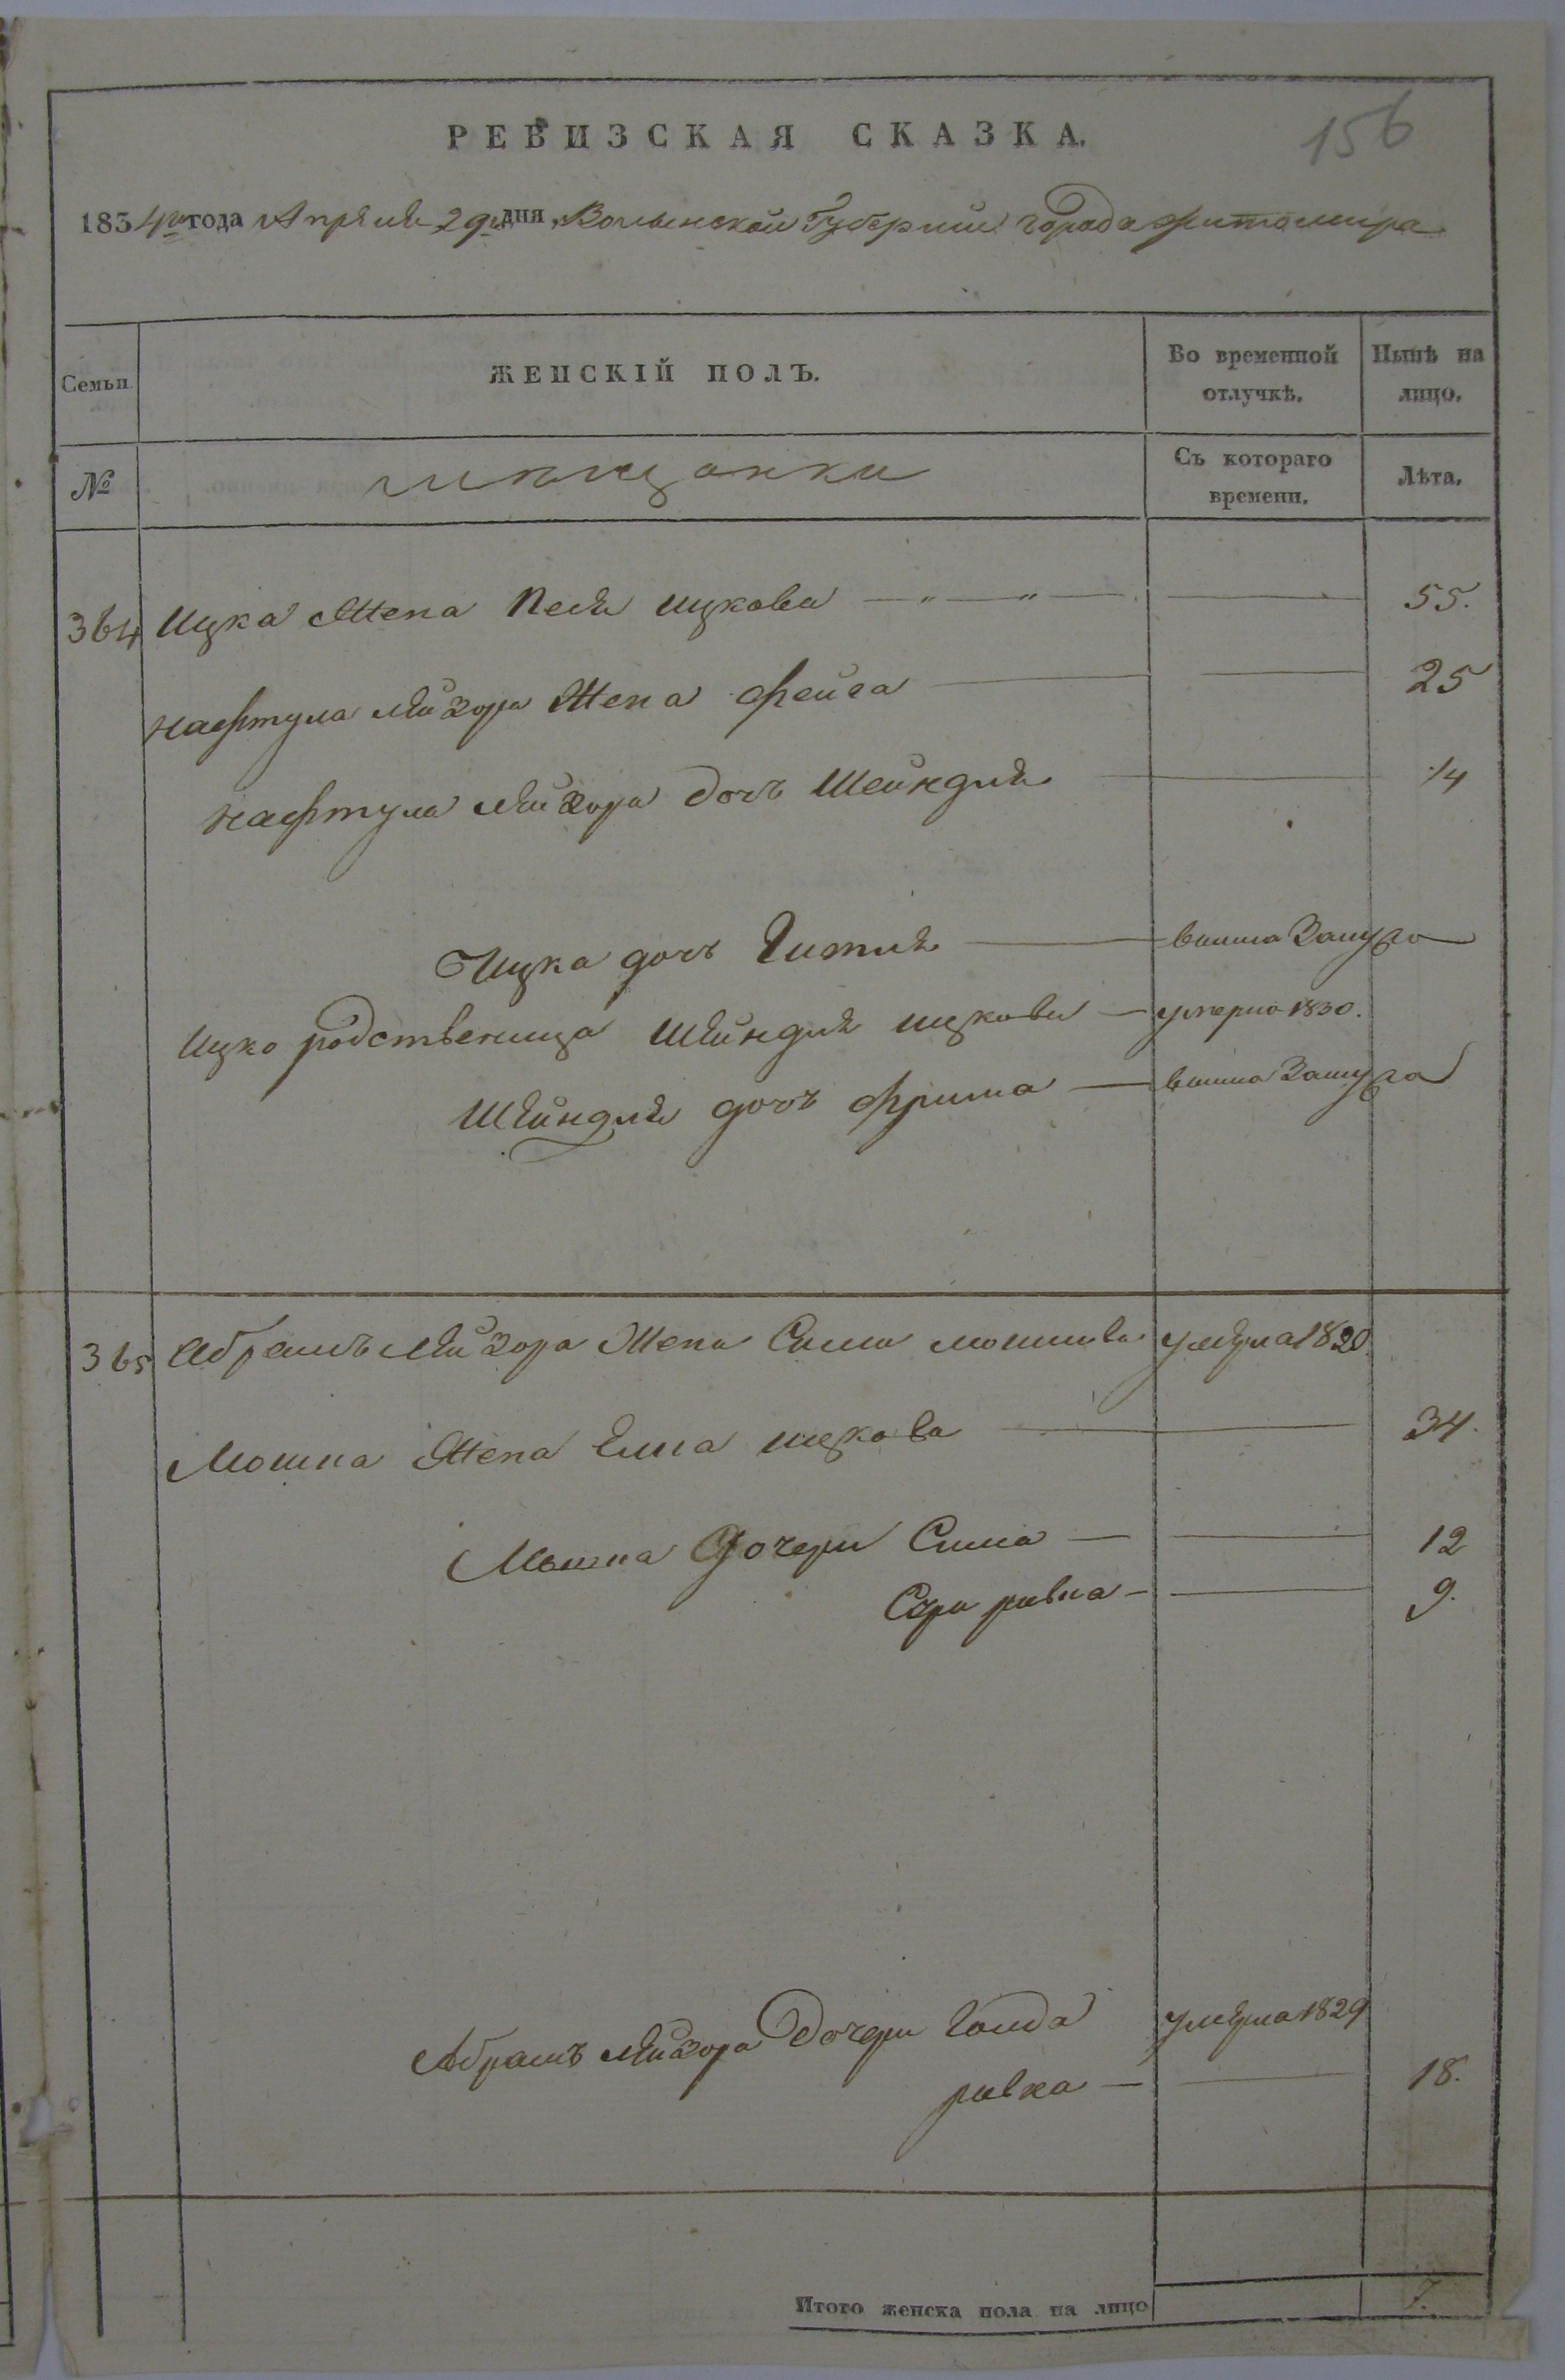 РЕВИЗСКАЯ СКАЗКА.
156
1834го года Апреля 29 дня Волынской Губернии города Житомира
Семьи. ЖЕНСКІЙ ПОЛЪ. Во временной отлучкѣ. Нынѣ на лицо.
№ мещанки Съ котораго времени. Лѣта.
364 Ицка Жена Песя ицкова — " — " — — 55.
нафтула лейзора Жена фейга — — 25
нафтула лейзора дочь Шейндля — 14
Ицка дочь Гитля — вышла Замуж
Ицко родственица Шейндля ицкова — умерла 1830.
Шейндля дочь фрима — вышла Замуж
365 Абрамъ лейзора Жена Сима мошкова умерла 1820
Мошка Жена Елка ицкова — — 34.
Мошка Дочери Сима — — 12
Сура ривка — — 9.
Абрамъ лейзора Дочери Голда умерла 1829
ривка — — 18.
Итого женска пола на лицо 7.